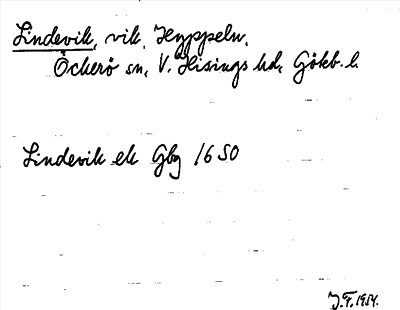 Lindevik, vik, Hyppeln,
Öckerö sn, V. Hisings hd, Götb. l.
Lindevik ek Gbg 1650
J.F. 1954.